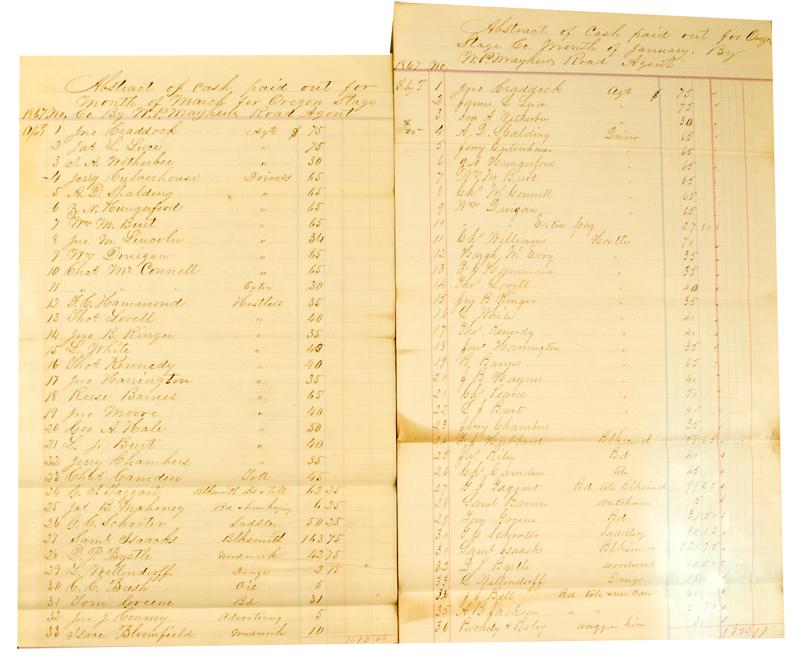 Abstract of cash paid out for
Month of March for Oregon Stage
1867 No. Co. By W. P. Mayhew Road Agent
1 Jno Craddock Agt $ 75
2 Jas L. Luce " 75
3 I. A. Witherbee " 30
4 Jerry Culverhouse Drivers 65
5 A. D. Spalding " 65
6 Z. N. Hungerford " 65
7 Wm M. Burt " 65
8 Jno M. Lincoln " 34
9 Wm Donigan " 65
10 Chas Mc Connell " 65
11 " Extra 30
12 F. C. Hammond Hostlers 35
13 Thos Lovell " 40
14 Jno B. Ringer " 35
15 L. White " 45
16 Thos Kennedy " 40
17 Jno Harrington " 35
18 Reese Barnes " 65
19 Jno Moore " 40
20 Geo A Hale " 50
21 L. J. Burt " 40
22 Jerry Chambers " 35
23 Chas Camden Toll 45
24 G. I. Taggart Blksmith Bd & toll 62 25
25 Jas B. Mahoney Bd 6 25
26 G. C. Schroter Saddler 50 25
27 Saml Isaacks Blksmith 163 75
28 D. P. Bystle Woodwork 42 75
29 L. Wellendorff Drugs 2 15
30 C. C. Bush Oil 5
31 Tom Greene Bd 31
32 Jno J. Conmy Advertising 5
33 Isaac Bloomfield Woodwork 10
Abstract of Cash paid out for Oregon
Stage Co. Month of January. By
1867 No. W. P. Mayhew Road Agent
1 Jno Craddock Agt $ 75
2 James L Luce " 75
3 Ira A Witherbee " 30
4 A. D. Spalding Driver 65
5 Jerry Culverhouse " 65
6 Z. N. Hungerford " 65
7 Wm M. Burt " 65
8 Chs Mc Connell " 65
9 Wm Dunigan " 65
10 " Extra pay 27 80
11 Chs Williams Hostler 70
12 Hugh Mc Evoy " 35
13 F. C. Hammond " 35
14 Thos Lovell " 40
15 Jno B Ringer " 35
16 L White " 40
17 Thos Kenendy "
18 Jno Harrington " 35
19 R. Barnes " 65
20 J B Haynes "
21 Chs Pearce "
22 L J Burt "
23 Jerry Chambers " 35
24 Hubbard Blksmith
25 Jas Riley Bd
26 Chs Camden tole 45
27 G I Taggart Bd tole Blksmith
28 Saml Brown watchman 5
29 Tom Greene Bd
30 G C Schroter Saddlery
31 Saml Isaack Blksmith
32 D P Bystle woodwork
33 L Wellendorff Drugs
34 J J Bell Bd tole
35 A B Jackson " "
36 Brady & Riley waggon hire